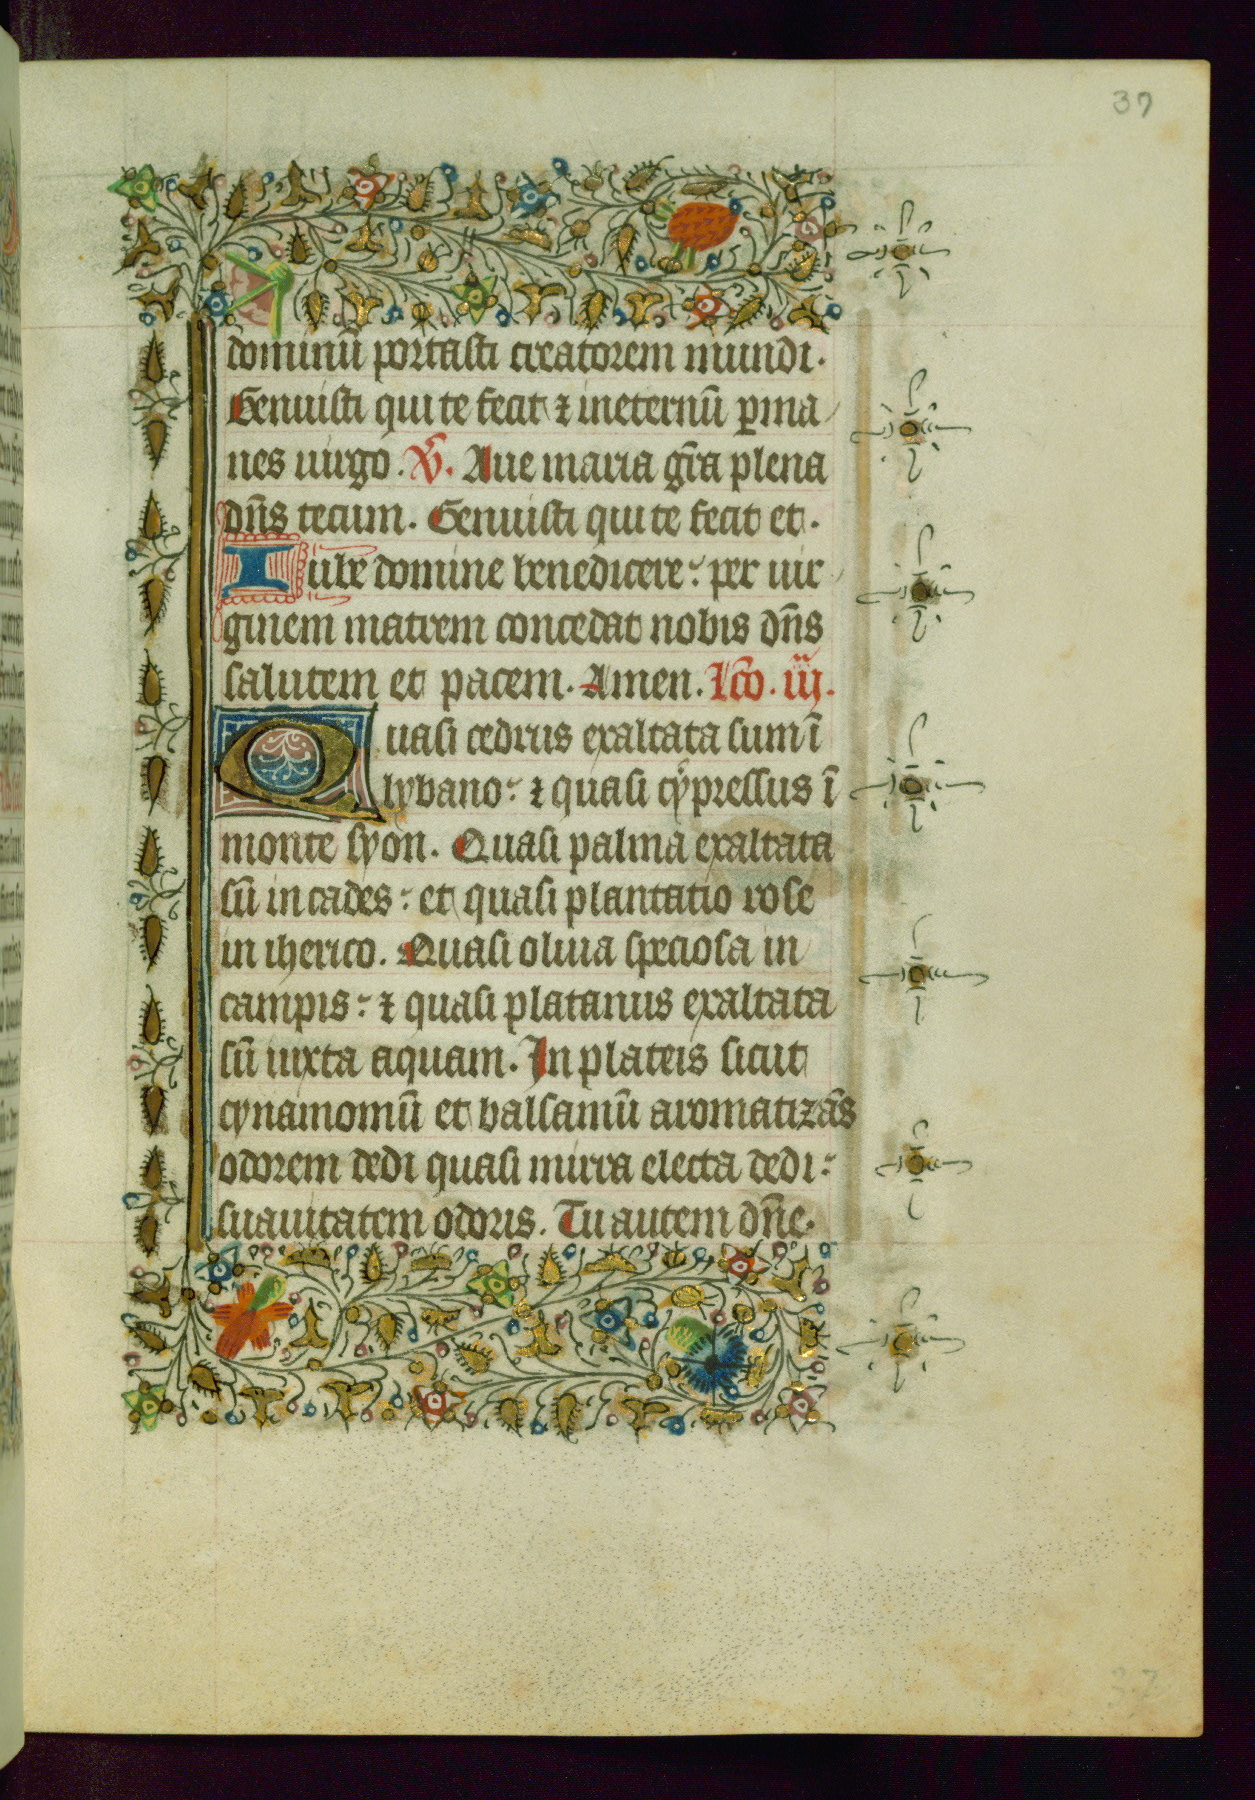 37
dominū portasti creatorem mundi.
Genuisti qui te fecit ⁊ ineternū ꝑma
nes uirgo. V̄. Aue maria gr̄a plena
dn̄s tecum. Genuisti qui te fecit et.
Iube domine benedicere: per uir
ginem matrem concedat nobis dn̄s
salutem et pacem. Amen. Lc̄o. iij.
Quasi cedrus exaltata sum ī
lybano: ⁊ quasi cypressus ī
monte syon. Quasi palma exaltata
sū in cades: et quasi plantatio rose
in iherico. Quasi oliua speciosa in
campis: ⁊ quasi platanus exaltata
sū iuxta aquam. In plateis sicut
cynamomū et balsamū aromatizās
odorem dedi quasi mirra electa dedi:
suauitatem odoris. Tu autem dn̄e.
37